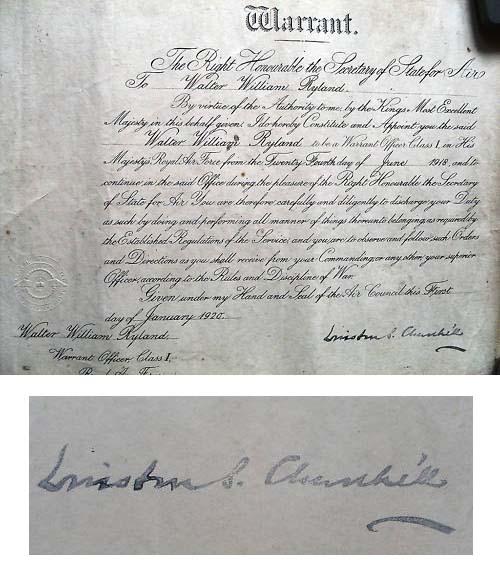 Warrant.
The Right Honourable the Secretary of State for Air
To Walter William Ryland.
By virtue of the Authority to me, by the Kings Most Excellent
Majesty in this behalf given. I do hereby Constitute and Appoint you the said
Walter William Ryland to be a Warrant Officer Class I, in His
Majesty's Royal Air Force from the Twenty Fourth day of June 1918, and to
continue in the said Office during the pleasure of the Right Honourable the Secretary
of State for Air. You are therefore carefully and diligently to discharge your Duty
as such by doing and performing all manner of things thereunto belonging, as required by
the Established Regulations of the Service, and you are to observe and follow such Orders
and Directions as you shall receive from your Commanding or any other your superior
Officer, according to the Rules and Discipline of War.
Given under my Hand and Seal of the Air Council this First
day of January 1920.
Winston S. Churchill
Walter William Ryland,
Warrant Officer, Class I,
Royal Air Force
Winston S. Churchill